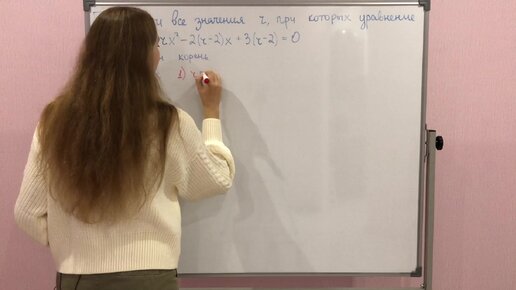 и все значения r, при которых уравнение
rx² - 2(r-2)x + 3(r-2) = 0
корень
1) r